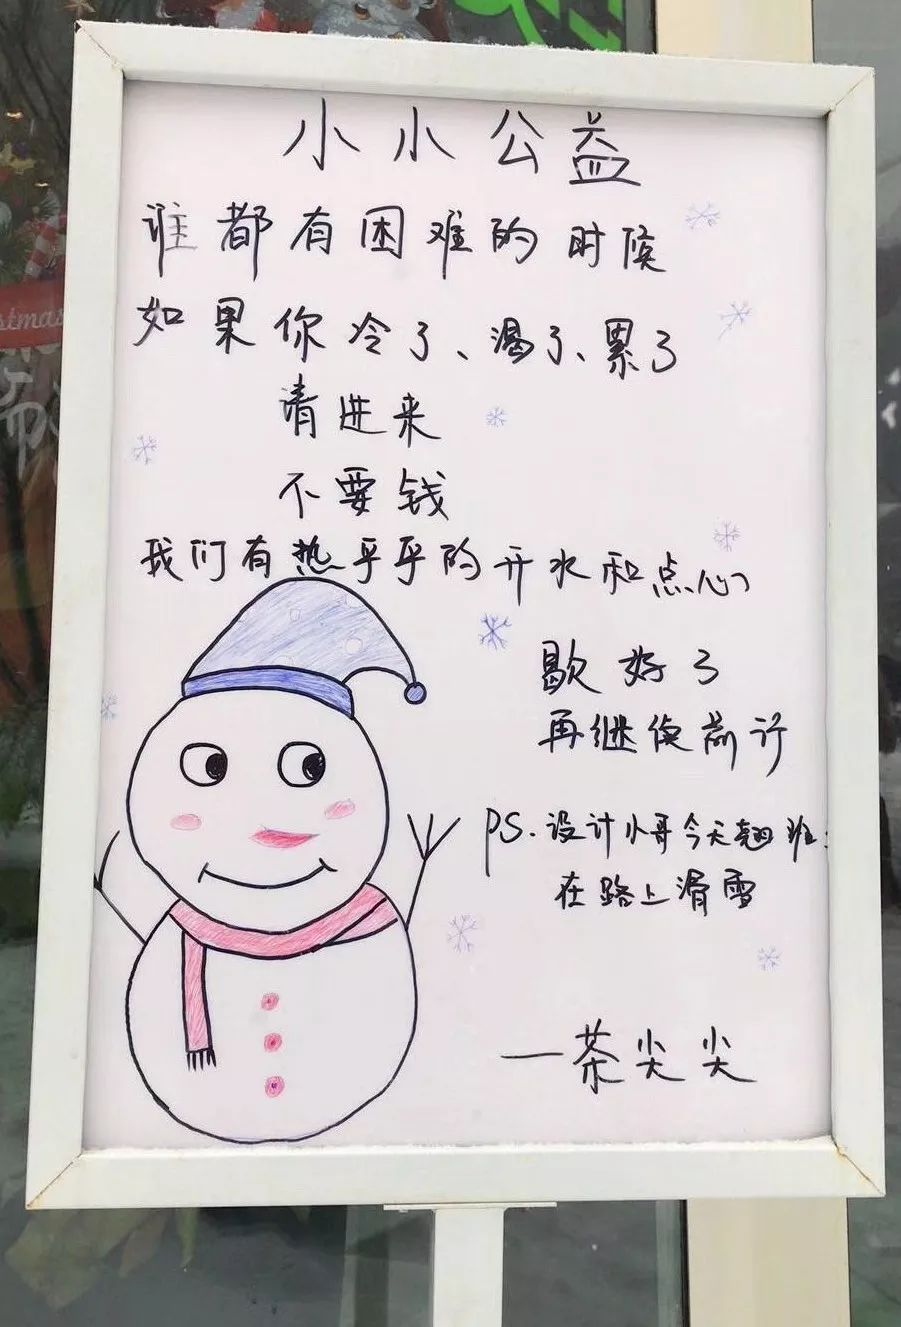 小小公益
谁都有困难的时候
如果你冷了、渴了、累了
请进来
不要钱
我们有热乎乎的开水和点心
歇好了
再继续前行
PS.设计小哥今天翘班:
在路上滑雪
一茶尖尖
stmas